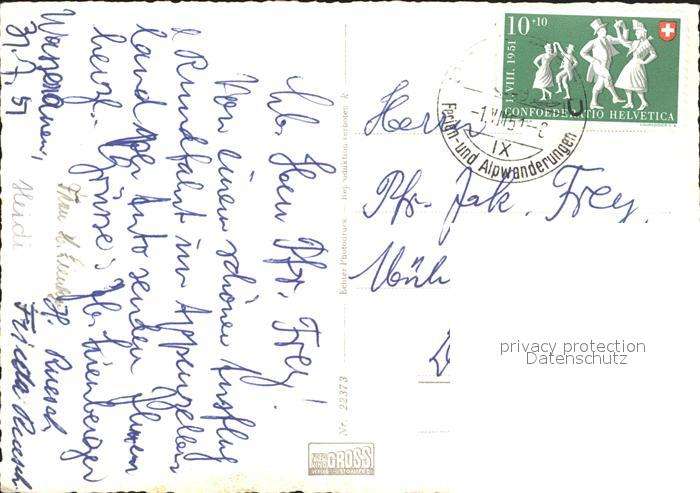 Lb. Herr Pfr. Frey!
Von einem schönen Ausflug
& Rundfahrt im Appenzeller-
land per Auto senden Ihnen
herzl. Grüsse
Lienberger
H. Ruesch
Frieda Ruesch
Heidi
31. 7. 51
Herrn
Pfr. Jak. Frey
10+10
1. VIII. 1951
CONFOEDERATIO HELVETICA
-1.VIII.51-8
IX
Ferien- und Alpwanderungen
Echter Photodruck Reproduktion verboten
Nr. 22373
GROSS
privacy protection
Datenschutz